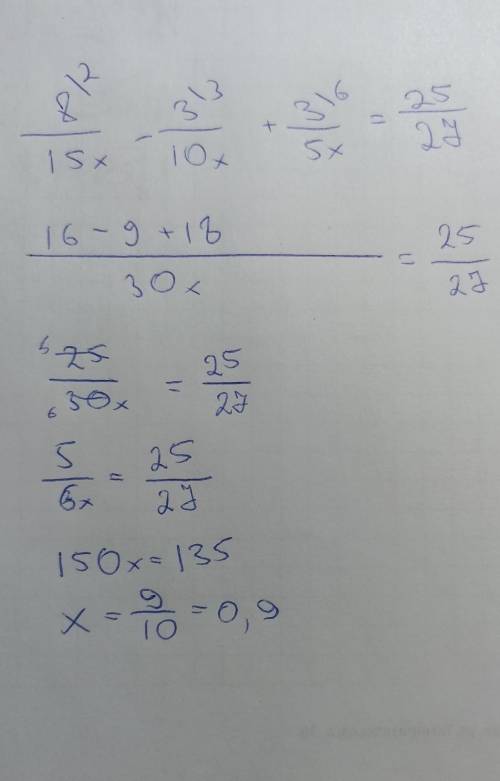 8\2/15x - 3\3/10x + 3\6/5x = 25/27
16 - 9 + 18/30x = 25/27
5 25/6 30x = 25/27
5/6x = 25/27
150x = 135
x = 9/10 = 0,9